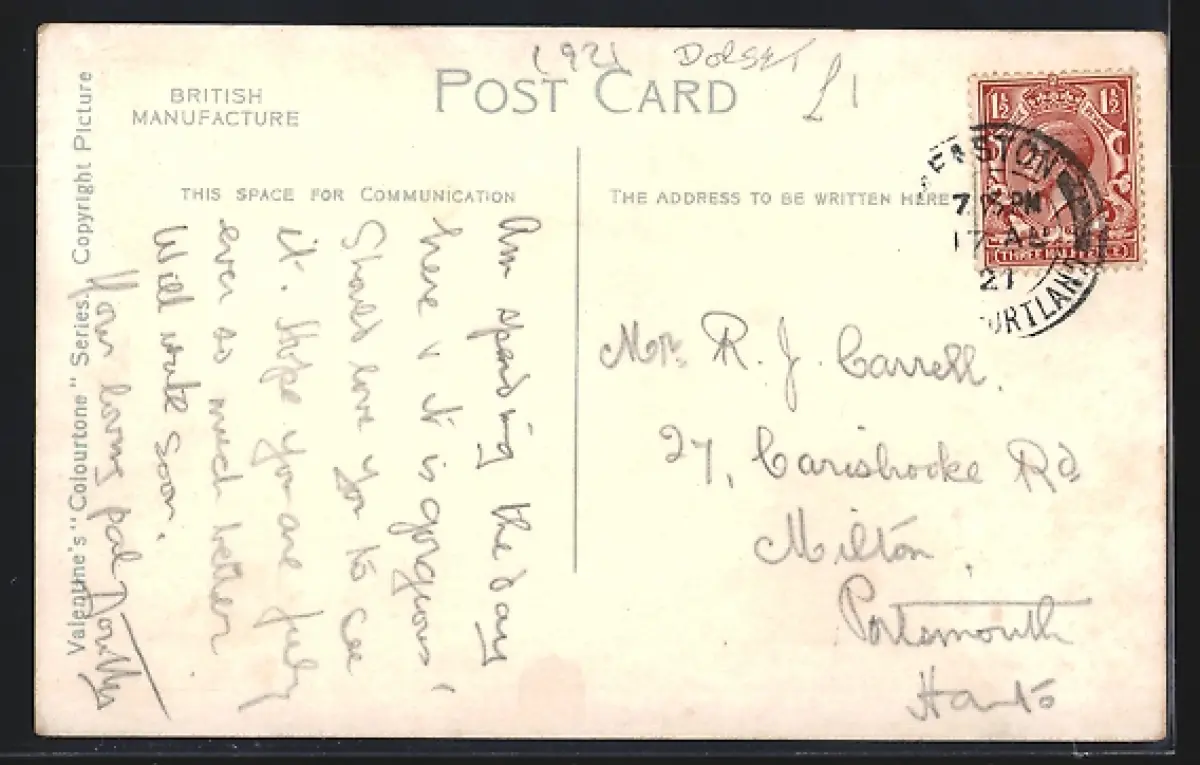 1921 Dorset £1
POST CARD
BRITISH
MANUFACTURE
THIS SPACE FOR COMMUNICATION
THE ADDRESS TO BE WRITTEN HERE
Valentine's "Colourtone" Series. Copyright Picture
1½ 1½
THREE HALF PENCE
EASTON
PM
17 AU
21
PORTLAND
Am spending the day
here & it is gorgeous,
Should love you to see
it. Hope you are feeling
ever so much better
Will write soon.
Your loving pal
Mr. R. J. Carrell.
27, Carisbrooke Rd
Milton,
Portsmouth
Hants